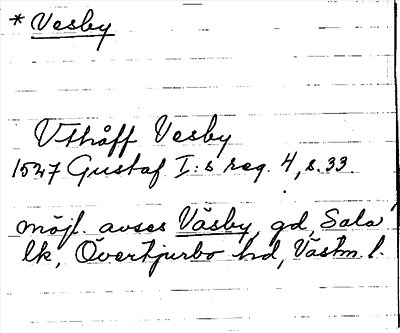 * Vesby
Vthåff Vesby
1527 Gustaf I:s reg. 4, s. 33
möjl. avses Väsby, gd, Sala
lk, Övertjurbo hd, Västm. l.